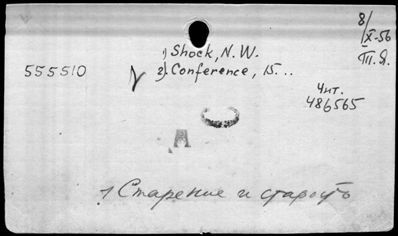 8/
IX-56
1) Shock, N. W.
555510
2) Conference, 15...
Чит.
486565
A
1 Старение и старость